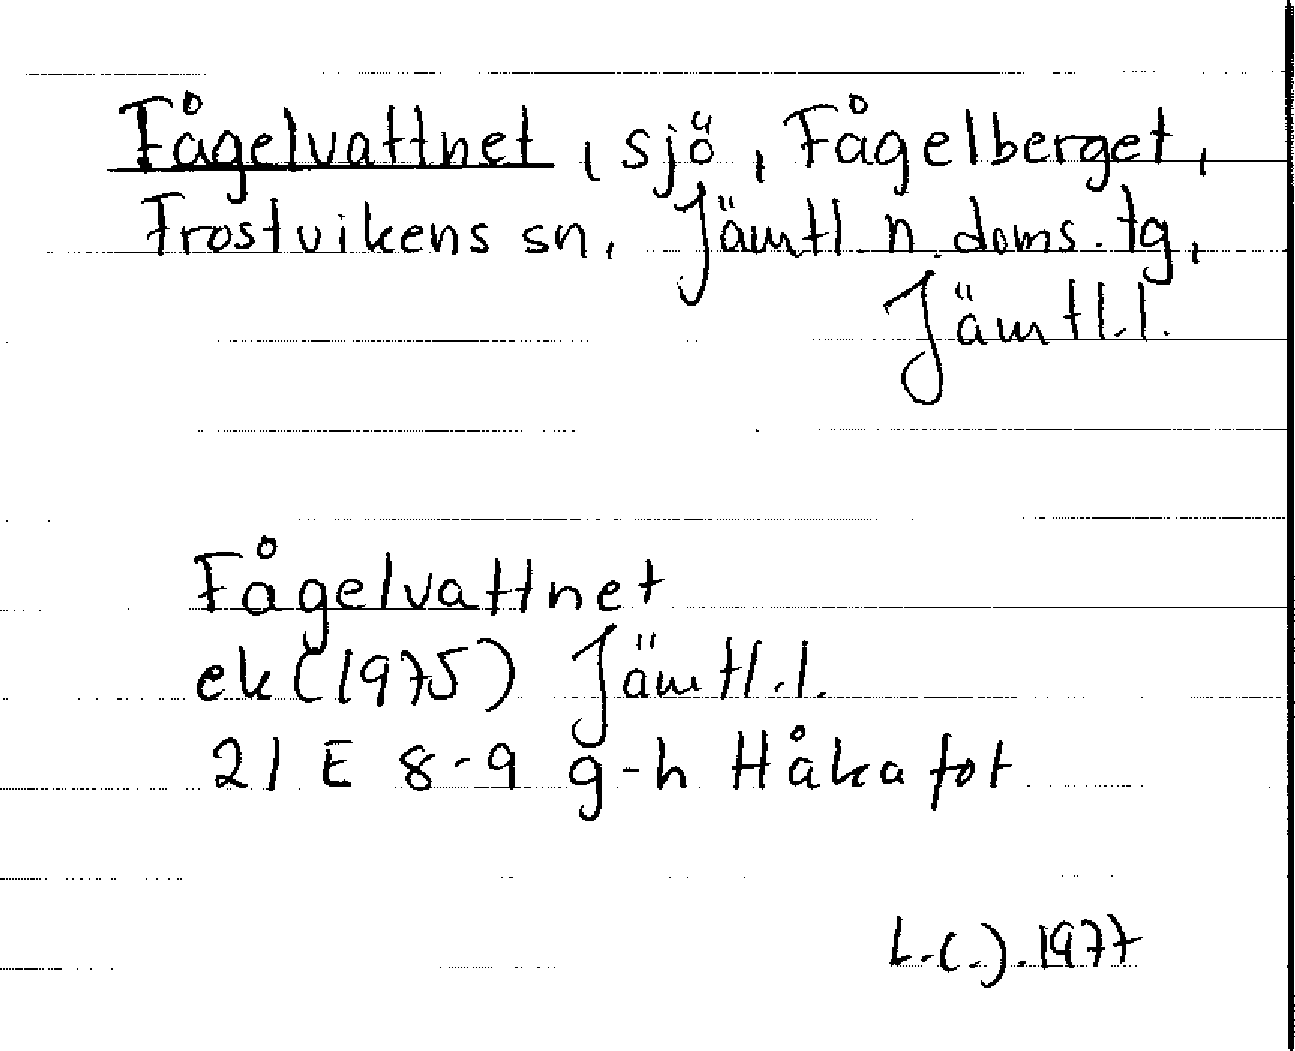 Fågelvattnet, sjö, Fågelberget,
Frostvikens sn, Jämtl n. doms. tg,
Jämtl.l.
Fågelvattnet
ek (1975) Jämtl.l.
21 E 8-9 g-h Håkafot
L.(.).1977